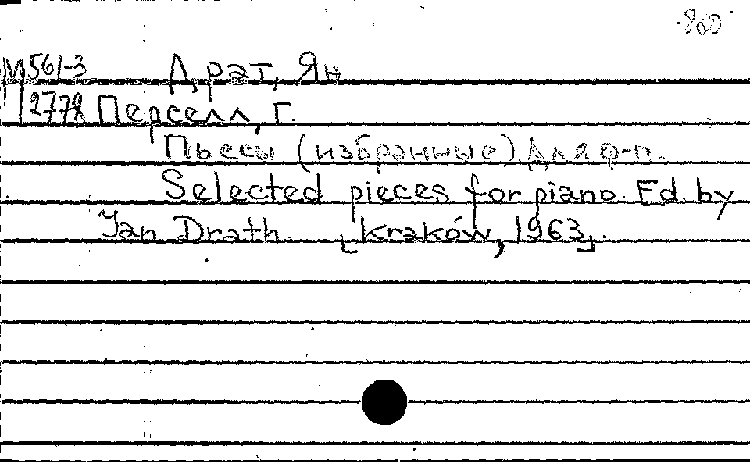 М561-3 Драт, Ян
12778 Перселл, Г.
Пьесы (избранные) для ф-п.
Selected pieces for piano. Ed. by
Jan Drath. [Kraków, 1963].